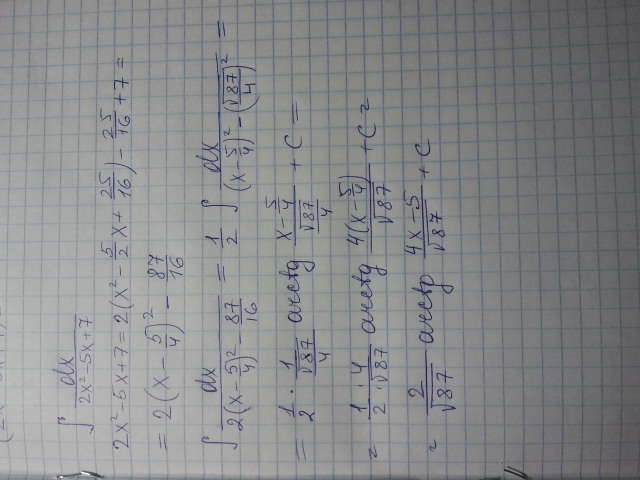 ∫ dx / (2x² - 5x + 7)
2x² - 5x + 7 = 2(x² - 5/2 x + 25/16) - 25/16 + 7 =
= 2(x - 5/4)² - 87/16
∫ dx / (2(x - 5/4)² - 87/16) = 1/2 ∫ dx / ((x - 5/4)² - (√87/4)²) =
= 1/2 · 1/(√87/4) arctg (x - 5/4)/(√87/4) + C =
= (1 · 4)/(2 · √87) arctg 4(x - 5/4)/√87 + C =
= 2/√87 arctg (4x - 5)/√87 + C